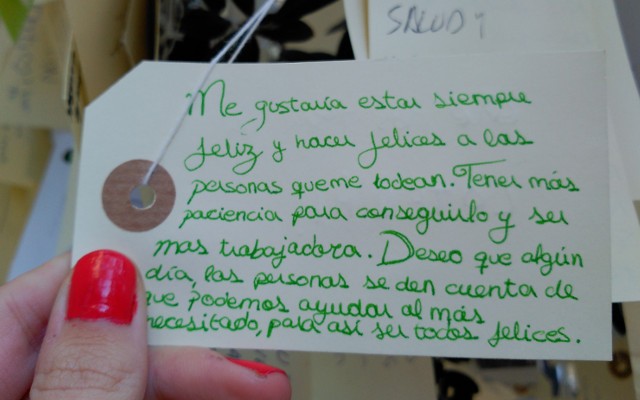 SALUD Y
Me gustaría estar siempre
feliz y hacer felices a las
personas que me rodean. Tener más
paciencia para conseguirlo y ser
mas trabajadora. Deseo que algún
día, las personas se den cuenta de
que podemos ayudar al más
necesitado, para así ser todos felices.